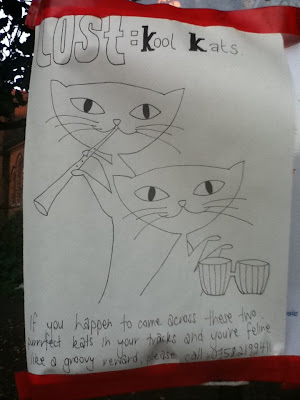 LOST: Kool Kats.
If you happen to come across these two
purrfect kats in your tracks and you're feline
like a groovy reward, please call :